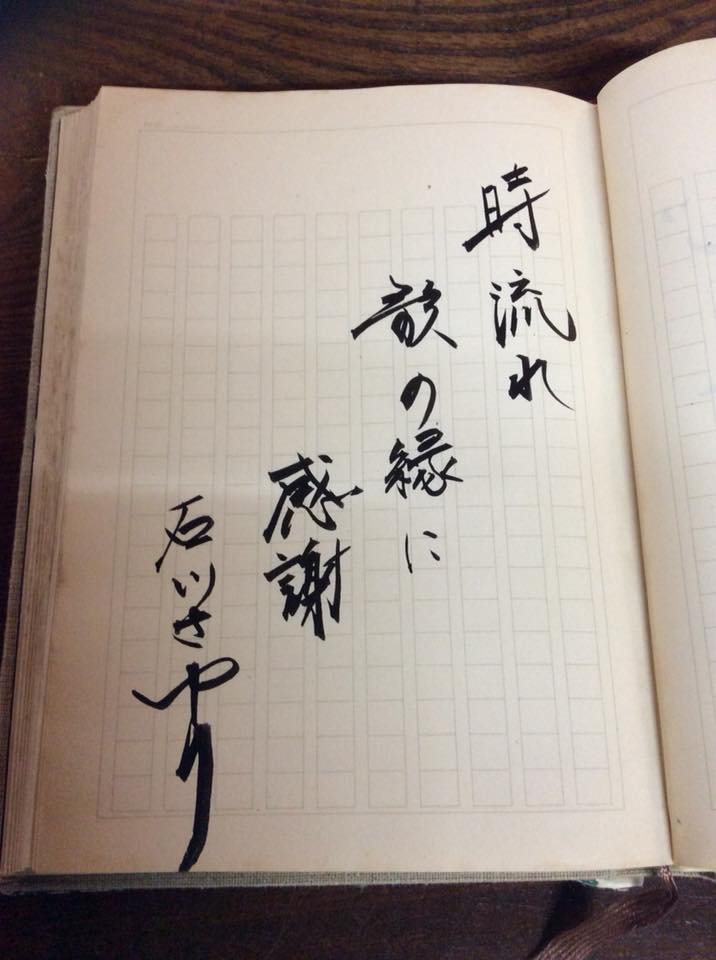 時流れ
歌の縁に
感謝
石川さゆり